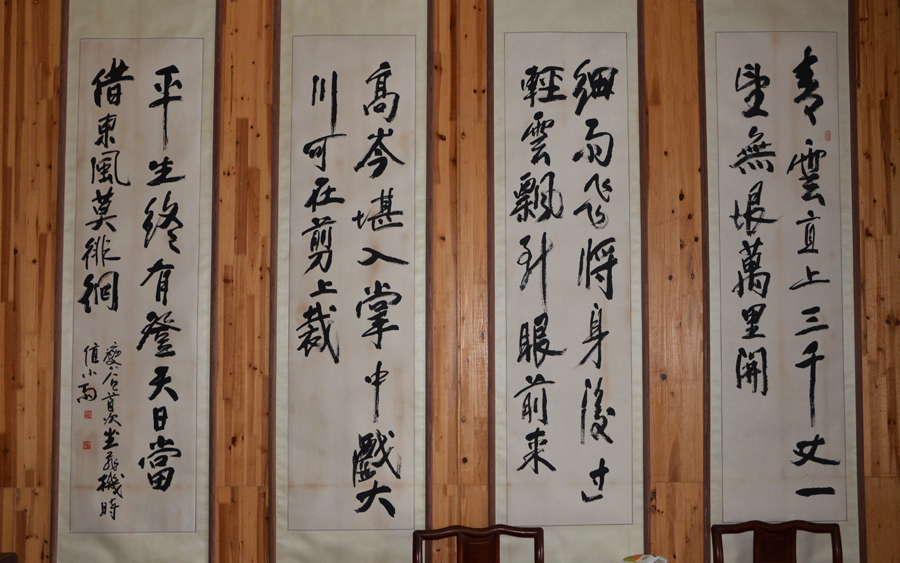 青雲直上三千丈一
望無垠萬里開
細雨飛將身後過
輕雲飄到眼前来
高岑堪入掌中戲大
川可在剪上裁
平生終有登天日當
借東風莫徘徊
首次坐飛機時
值小雨